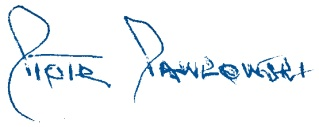 Piotr Pawłowski